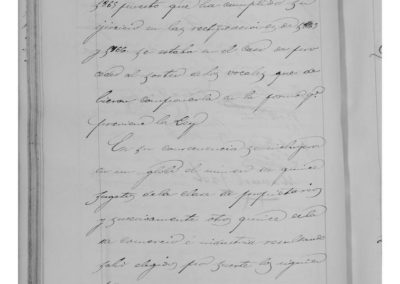 puesto que ha cumplido su
ejercicio en las rectificaciones de
y se estaba en el caso de pro
ceder al sorteo de los vocales que de
bieran componerla en la forma q.e
previene la Ley
En su consecuencia se incluyeron
en un globo el numero de quince
de la clase de propietarios
y sucesivamente otros quince de la
de comercio é industria resultando
elegidos por suerte los siguien